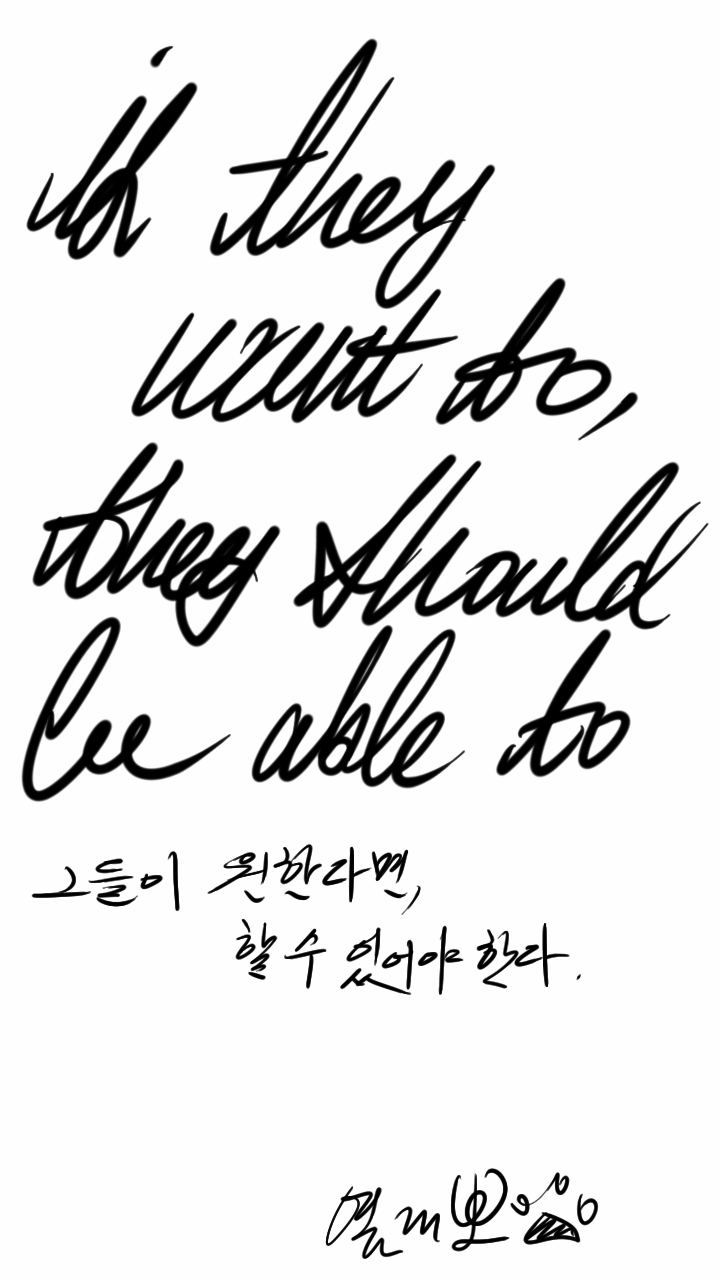 if they
want to,
they should
be able to
그들이 원한다면,
할 수 있어야 한다.